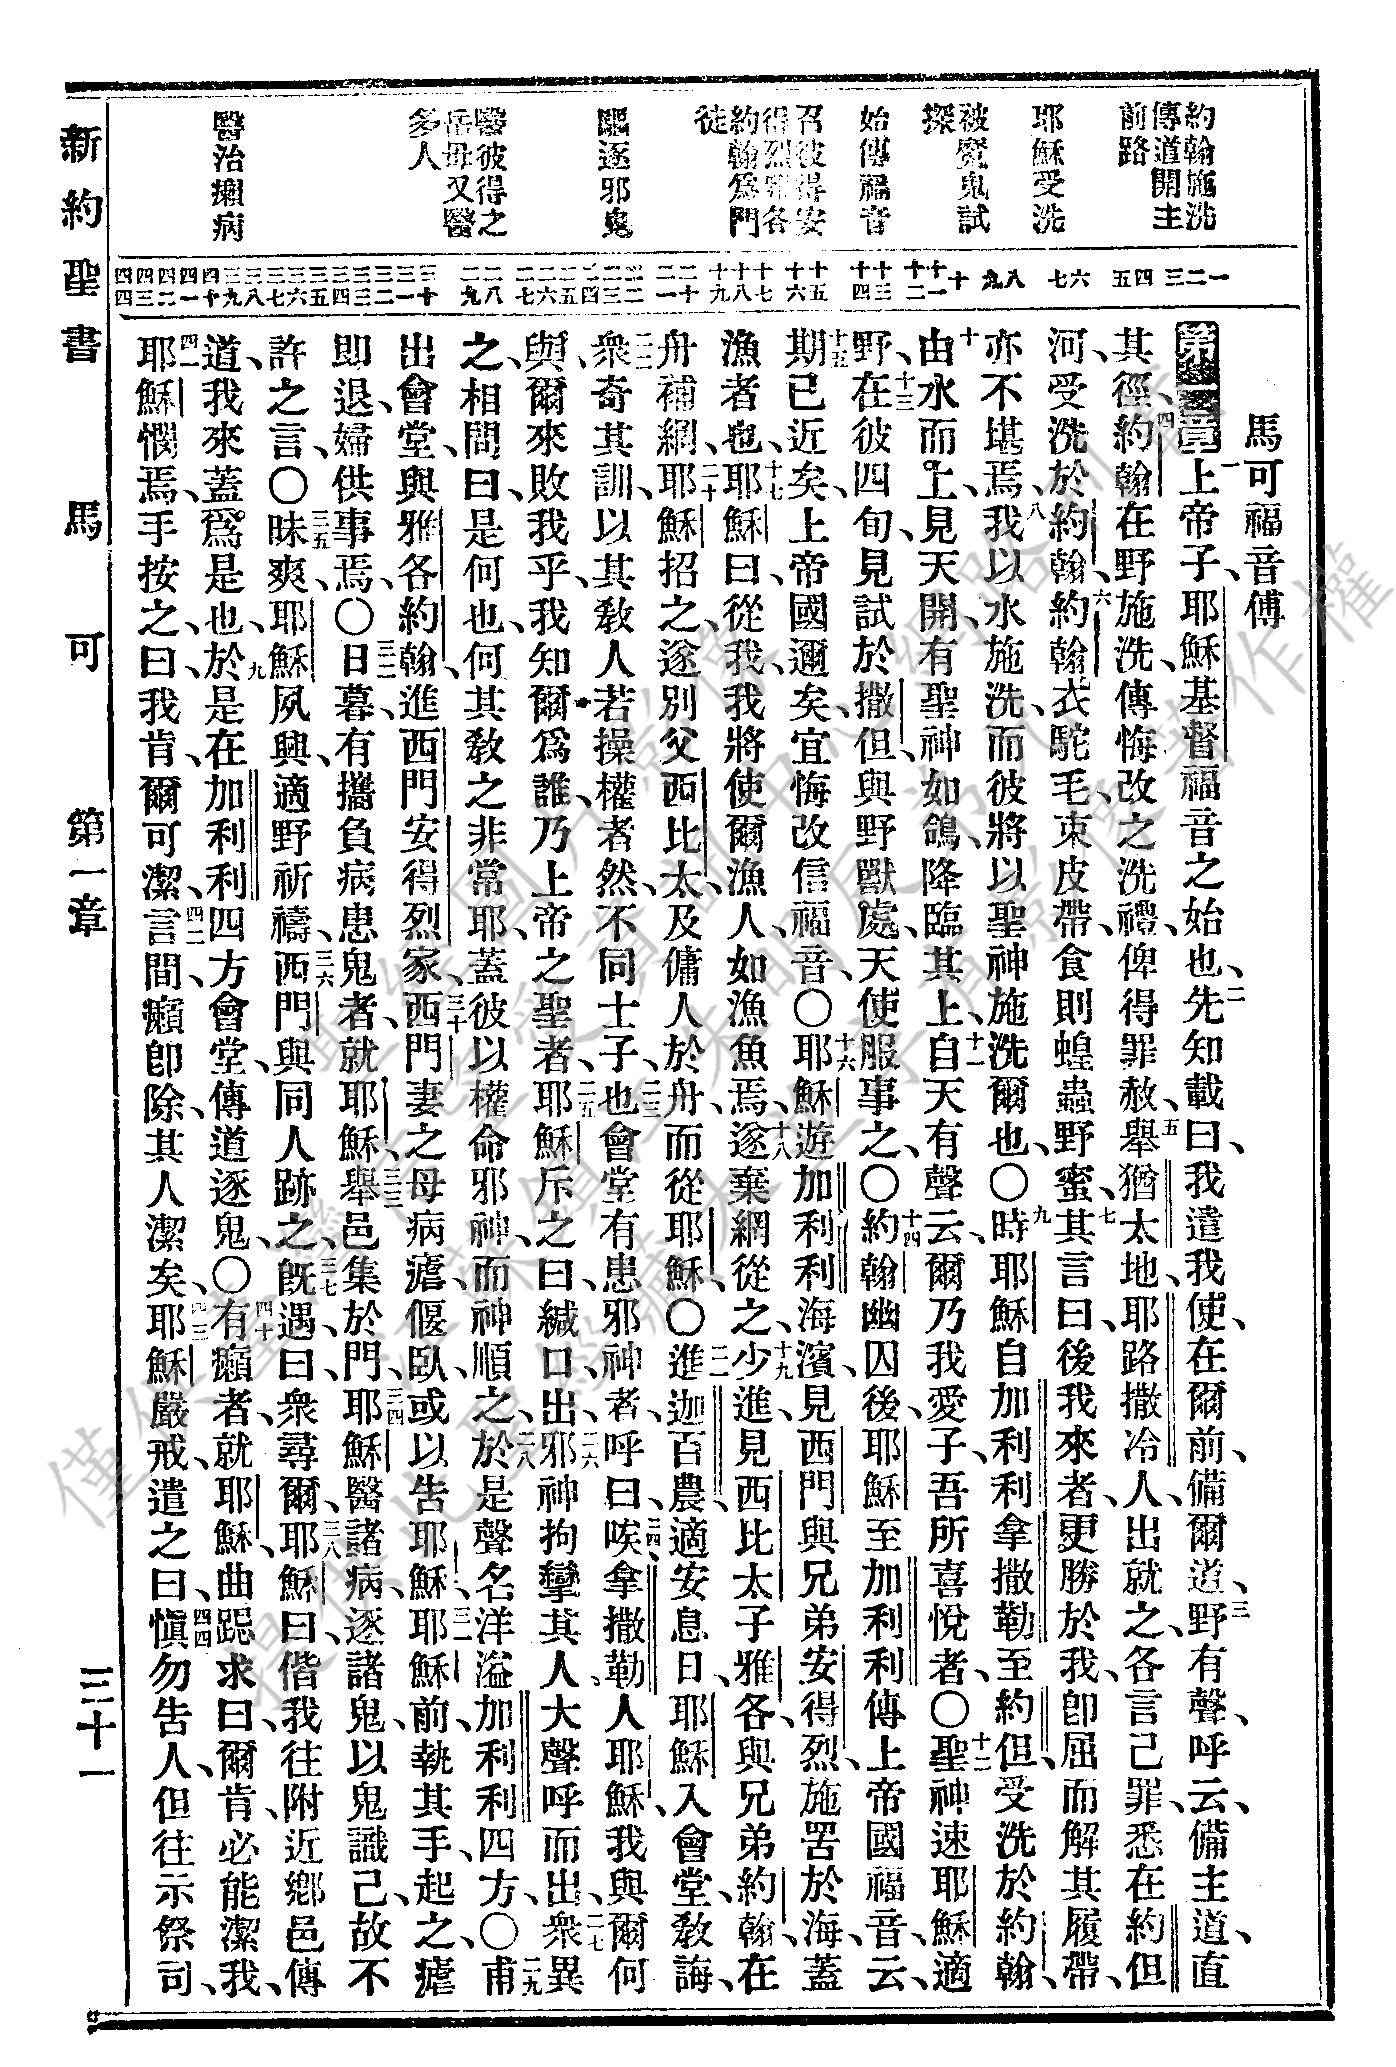 約翰施洗
傳道開主
前路
耶穌受洗
被魔鬼試
探
始傳福音
召彼得安
得烈雅各
約翰爲門
徒
驅逐邪鬼
醫彼得之
岳母又醫
多人
醫治癩病
一 二 三 四 五 六 七 八 九 十 十一 十二 十三 十四 十五 十六 十七 十八 十九 二十 二一 二二 二三 二四 二五 二六 二七 二八 二九 三十 三一 三二 三三 三四 三五 三六 三七 三八 三九 四十 四一 四二 四三 四四
馬可福音傳
第一章 一上帝子、耶穌基督福音之始也、二先知載曰、我遣我使、在爾前、備爾道、三野有聲、呼云、備主道、直
其徑、四約翰在野施洗、傳悔改之洗禮、俾得罪赦、五舉猶太地、耶路撒冷人、出就之、各言己罪、悉在約但
河、受洗於約翰、六約翰衣駝毛、束皮帶、食則蝗蟲野蜜、七其言曰、後我來者、更勝於我、卽屈而解其履帶、
亦不堪焉、八我以水施洗、而彼將以聖神施洗爾也、〇九時耶穌自加利利拿撒勒至約但、受洗於約翰、
十由水而上、見天開、有聖神如鴿、降臨其上、十一自天有聲云、爾乃我愛子、吾所喜悅者、〇十二聖神速耶穌適
野、十三在彼四旬、見試於撒但、與野獸處、天使服事之、〇十四約翰幽囚後、耶穌至加利利、傳上帝國福音、云、
十五期已近矣、上帝國邇矣、宜悔改信福音、〇十六耶穌遊加利利海濱、見西門與兄弟安得烈、施罟於海、蓋
漁者也、十七耶穌曰、從我、我將使爾漁人如漁魚焉、十八遂棄網從之、十九少進、見西比太子雅各、與兄弟約翰、在
舟補網、二十耶穌招之、遂別父西比太、及傭人於舟、而從耶穌、〇二一進迦百農、適安息日、耶穌入會堂、敎誨、
二二衆奇其訓、以其敎人若操權者然、不同士子也、二三會堂有患邪神者、呼曰、二四唉、拿撒勒人耶穌、我與爾何
與、爾來敗我乎、我知爾爲誰、乃上帝之聖者、二五耶穌斥之曰、緘口、出、二六邪神拘攣其人、大聲呼而出、二七衆異
之、相問曰、是何也、何其敎之非常耶、蓋彼以權命邪神、而神順之、二八於是聲名洋溢加利利四方、〇二九甫
出會堂、與雅各約翰、進西門安得烈家、三十西門妻之母病瘧、偃臥、或以告耶穌、三一耶穌前、執其手、起之、瘧
卽退、婦供事焉、〇三二日暮、有攜負病患鬼者、就耶穌、三三舉邑集於門、三四耶穌醫諸病、逐諸鬼、以鬼識己、故不
許之言、〇三五昧爽、耶穌夙興、適野祈禱、三六西門與同人跡之、三七旣遇、曰、衆尋爾、三八耶穌曰、偕我往附近鄉邑傳
道、我來蓋爲是也、三九於是在加利利四方會堂、傳道逐鬼、〇四十有癩者、就耶穌、曲跽求曰、爾肯、必能潔我、
四一耶穌憫焉、手按之、曰、我肯、爾可潔、四二言間、癩卽除、其人潔矣、四三耶穌嚴戒遣之曰、四四愼勿告人、但往示祭司、
新約聖書 馬可 第一章 三十一